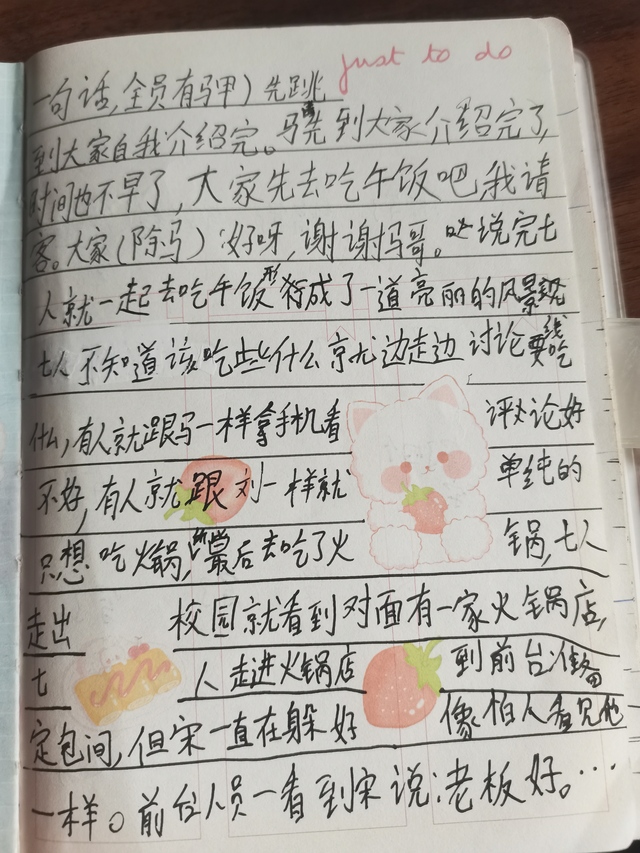 just to do
一句话,全员有马甲)先跳
到大家自我介绍完。马:先到大家介绍完了,
时间也不早了,大家先去吃午饭吧,我请
客。大家(除马):好呀,谢谢马哥。说完七
人就一起去吃午饭形成了一道亮丽的风景线
七人不知道该吃些什么就边走边讨论要吃
什么,有人就跟马一样拿手机看评论好
不好,有人就跟刘一样就单纯的
只想吃火锅,所以最后去吃了火锅,七人
走出校园就看到对面有一家火锅店,
七人走进火锅店到前台准备
定包间,但宋一直在躲好像怕人看见他
一样。前台人员一看到宋说:老板好。…